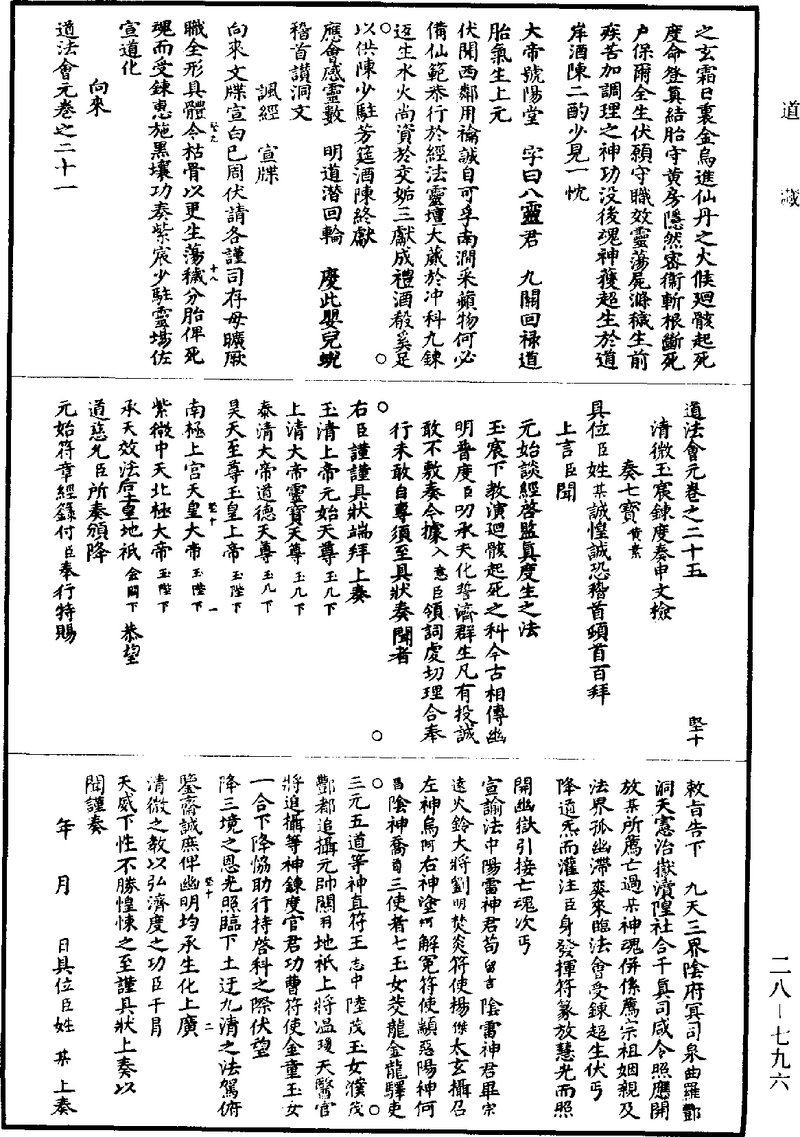 道藏
之玄霜日裹金烏進仙丹之火候廻骸起死
度命登真結胎守黃房隱然密衞斬根斷死
户保爾全生伏願守職效靈蕩屍滌穢生前
疾苦加調理之神功没後魂神蒦超生於道
岸酒陳二酌少見一忱
大帝號陽堂 字曰八靈君 九關回禄道
胎氣生上元
伏聞西鄰用禴誠自可孚南澗采蘋物何必
備仙範恭行於經法靈壇大蕆於冲科九鍊
返生水火尚資於交姤三獻成禮酒殽奚足
以供陳少駐芳筵酒陳終獻
應會感靈數 明道潛回輪 慶此嬰兒蛻
稽首讚洞文
諷經 宣牒
向來文牒宣白已周伏請各謹司存毋曠厥
職全形具體令枯骨以更生蕩穢分胎俾死
魂而受鍊惠施黑壤功奏紫宸少駐靈場佐
宣道化
向來
道法會元卷之二十一
道法會元卷之二十五 堅十
清微玉宸鍊度奏申文檢
奏七寶黄素
具位臣姓某誠惶誠恐稽首頓首百拜
上言臣聞
元始談經啓監真度生之法
玉宸下教演廻骸起死之科今古相傳幽
明普度臣叨承天化誓濟群生凡有投誠
敢不敷奏今據入意臣領詞虔切理合奉
行未敢自專須至具狀奏聞者
右臣謹謹具狀端拜上奏
玉清上帝元始天尊玉几下
上清大帝靈寶天尊玉几下
泰清大帝道德天尊玉几下
昊天至尊玉皇上帝玉陛下
南極上宮天皇大帝玉陛下
紫微中天北極大帝玉陛下
承天效法后土皇地祇金闕下 恭望
道慈允臣所奏頒降
元始符章經籙付臣奉行特賜
敕旨告下 九天三界陰府冥司泉曲羅酆
洞天憲治嶽瀆隍社合干真司咸令照應開
放某所薦亡過某神魂併係薦宗祖姻親及
法界孤幽滯爽來臨法會受鍊超生伏丐
降道炁而灌注臣身發揮符篆放慧光而照
開幽獄引接亡魂次丐
宣諭法中陽雷神君苟留吉陰雷神君畢宗
遠火鈴大將劉明焚炎符使楊傑太玄攝召
左神烏阿右神塗坷解冤符使顓惡陽神何
昌陰神喬旬三使者七玉女茭龍金龍驛吏
三元五道等神直符王志中陸茂玉女濮茂
酆都追攝元帥關羽地祇上將溫瓊天醫官
將追攝等神鍊度官君功曹符使金童玉女
一合下降恊助行持啓科之際伏望
降三境之恩光照臨下土迂九清之法駕俯
鑒齋誠庶俾幽明均承生化上廣
清微之教以弘濟度之功臣干冒
天威下性不勝惶悚之至謹具狀上奏以
聞謹奏
年 月 日具位臣姓 某 上奏
二八—七九六